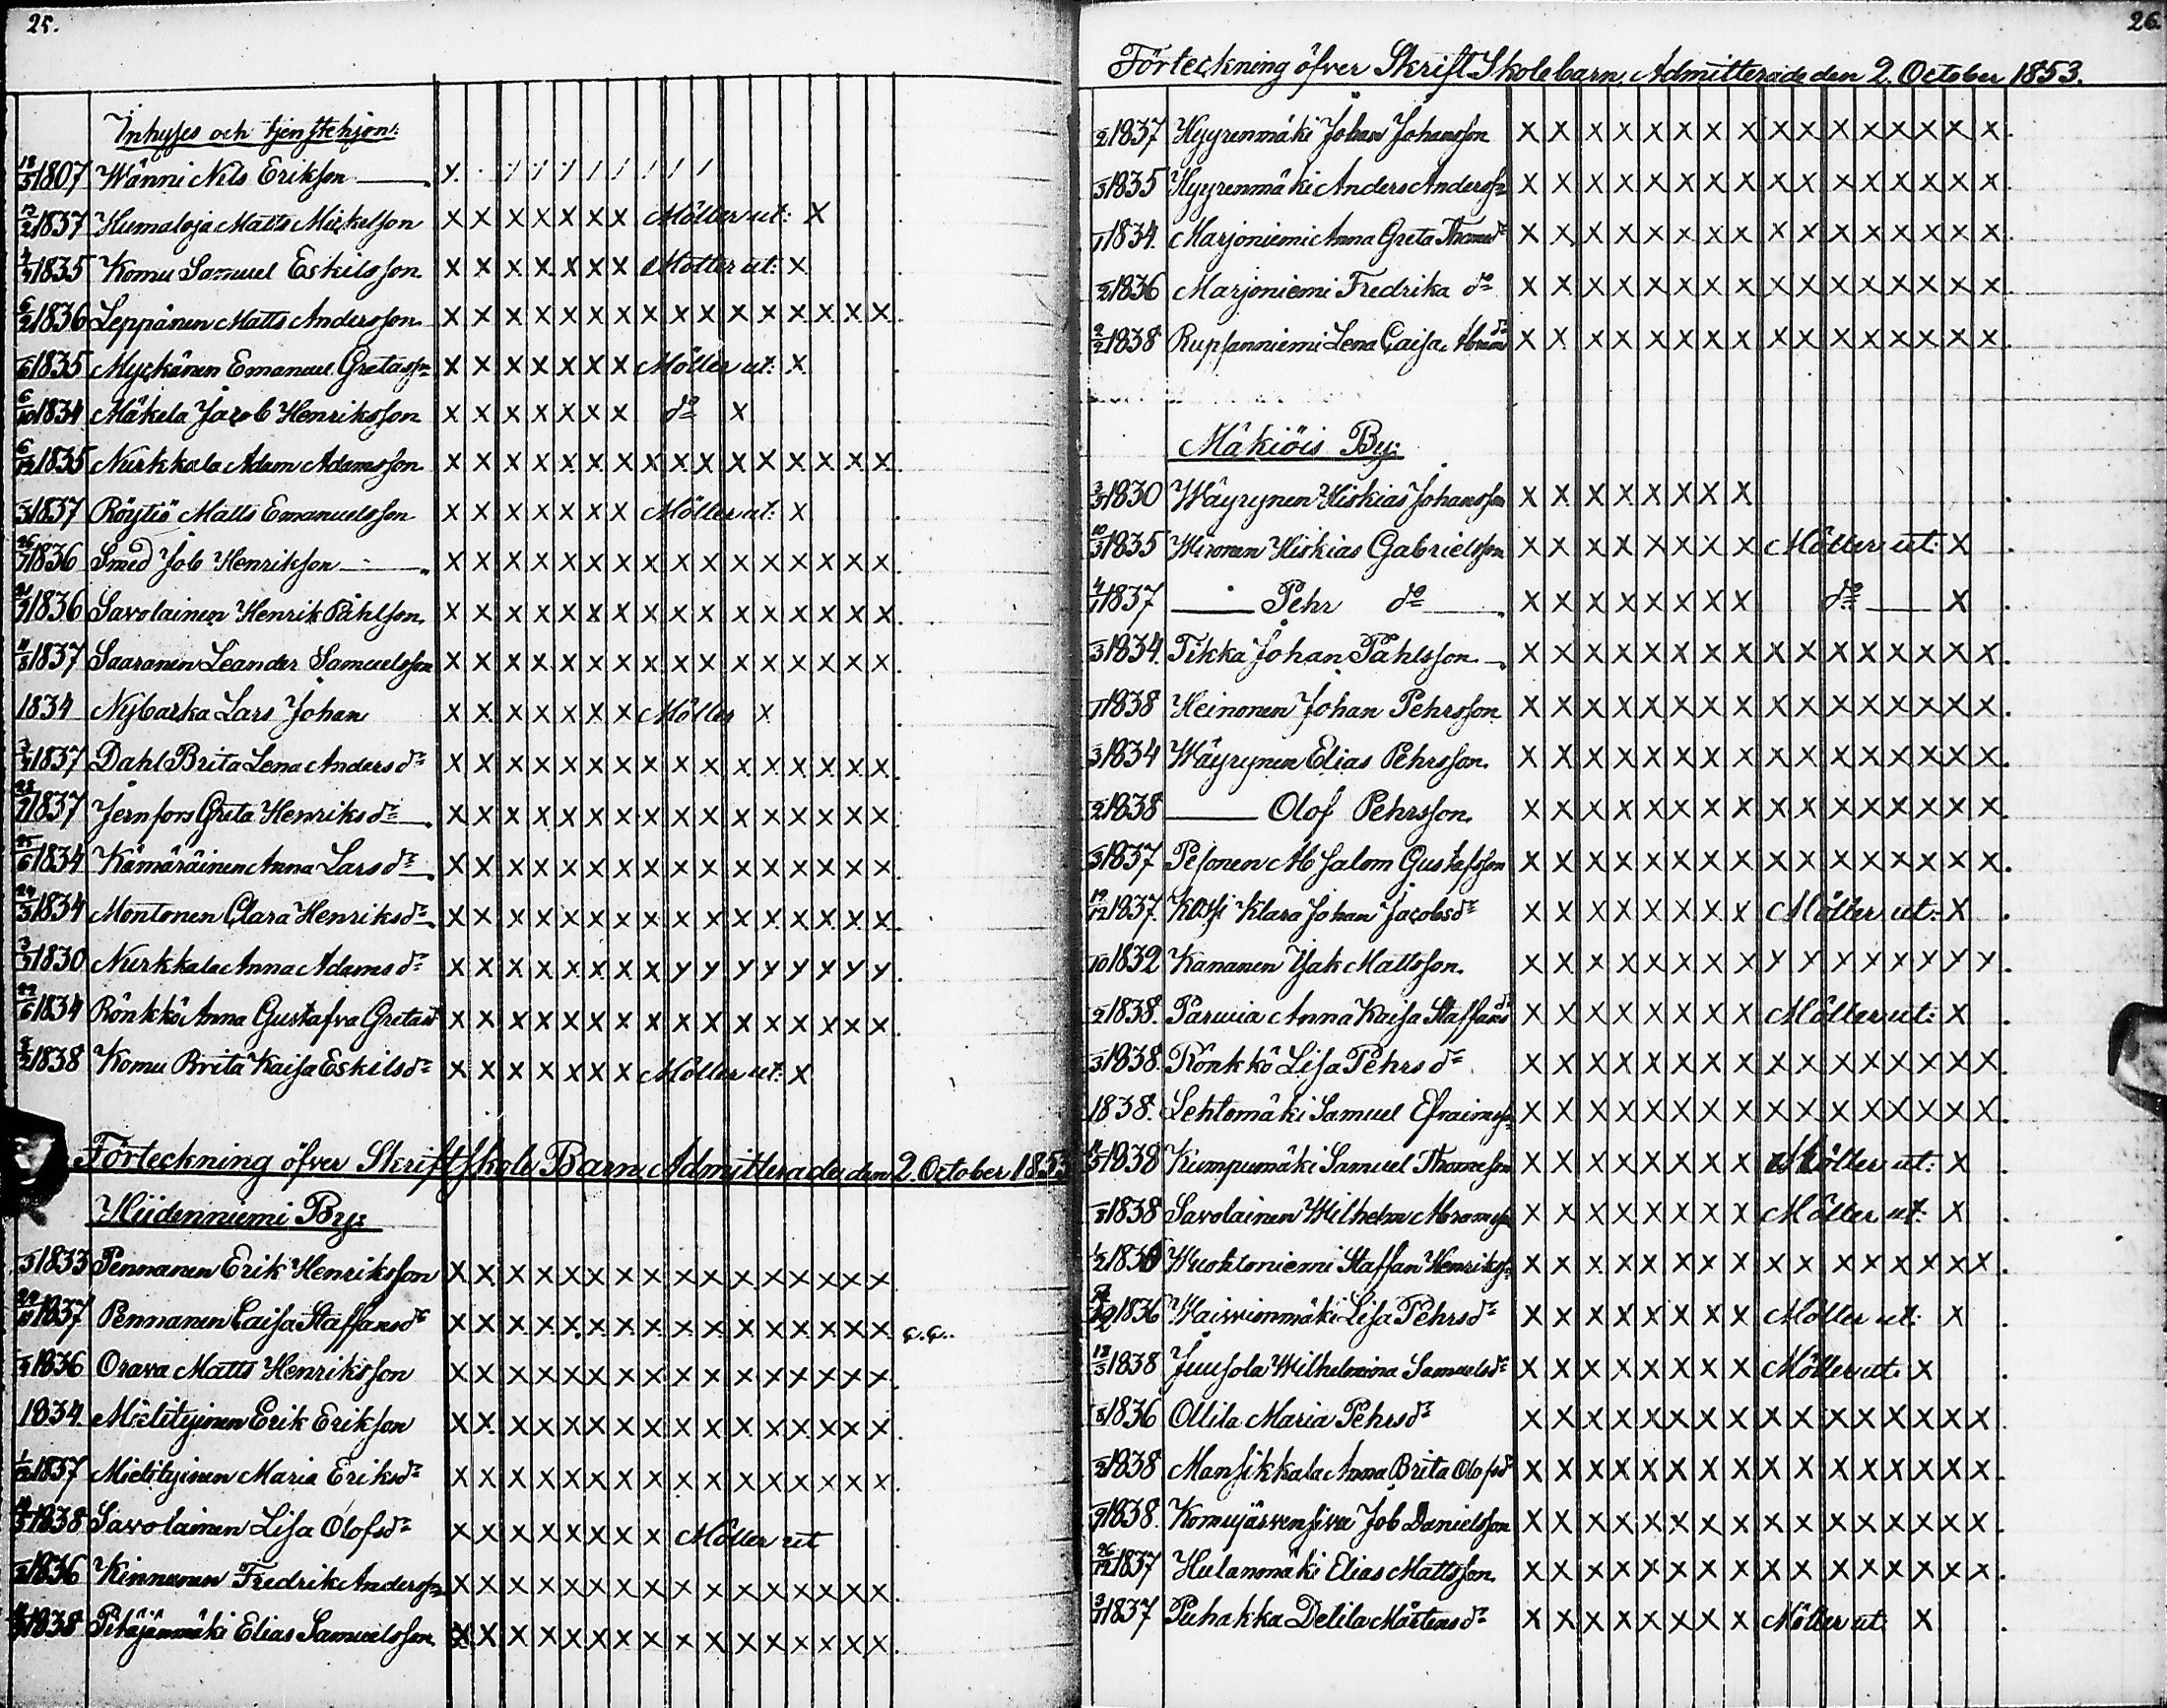 25.
Inhyses och tjenstehjon:
18/5 1807 Wänni Nils Erikson
12/2 1837 Humaloja Matts Mickelson x x x x x x x Möller ut: x
4/4 1835 Komu Samuel Eskilsson x x x x x x x Möller ut: x
6/2 1836 Leppänen Matts Andersson x x x x x x x x x x x x x x x x
1835 Myckänen Emanuel Gretasson x x x x x x x Möller ut: x
6/10 1834 Mäkela Jacob Henriksson x x x x x x x do x
6/12 1835 Nurkkala Adam Adamsson x x x x x x x x x x x x x x x x
1837 Röytiö Matts Emanuelsson x x x x x x x Möller ut: x
26/7 1836 Smed Job Henrikson x x x x x x x x x x x x x x x x
1836 Savolainen Henrik Påhlson x x x x x x x x x x x x x x x x
1837 Saaranen Leander Samuelsson x x x x x x x x x x x x x x x x
1834 Nybacka Lars Johan x x x x x x x Möller x
1837 Dahl Brita Lena Andersdr x x x x x x x x x x x x x x x x
1837 Jernfors Greta Henriksdr x x x x x x x x x x x x x x x x
25/6 1834 Kämäräinen Anna Larsdr x x x x x x x x x x x x x x x x
24/3 1834 Montonen Clara Henriksdr x x x x x x x x x x x x x x x x
1830 Nurkkala Anna Adamsdr x x x x x x x x y y y y y y y y
22/6 1834 Rönkkö Anna Gustafva Gretasd x x x x x x x x x x x x x x x x
1838 Komu Brita Kaisa Eskilsdr x x x x x x x Möller ut: x
Förteckning öfver Skriftskole Barn Admitterade den 2. October 1853
Hiidenniemi By:
1833 Pennanen Erik Henriksson x x x x x x x x x x x x x x x x
1837 Pennanen Caisa Staffansdr x x x x x x x x x x x x x x x x
1836 Orava Matts Henriksson x x x x x x x x x x x x x x x x
1834. Mielityinen Erik Erikson x x x x x x x x x x x x x x x x
1837 Mielityinen Maria Eriksdr x x x x x x x x x x x x x x x x
1838 Savolainen Lisa Olofsdr x x x x x x x x Möller ut
1836 Kinnunen Fredrik Andersson x x x x x x x x x x x x x x x x
1838 Pitäjänmäki Elias Samuelsson x x x x x x x x x x x x x x x x
26.
Förteckning öfver SkriftSkolebarn, Admitterade den 2. October 1853.
/2 1837 Hyyrenmäki Johan Johansson x x x x x x x x x x x x x x x x
/3 1835 Hyyrenmäki Anders Andersson x x x x x x x x x x x x x x x x
/1 1834. Marjoniemi Anna Greta Thomsdr x x x x x x x x x x x x x x x x
/2 1836 Marjoniemi Fredrika do x x x x x x x x x x x x x x x x
2/2 1838 Lena Caisa x x x x x x x x x x x x x x x x
Mäkiöis By:
1830 Wäyrynen Hiskias Johansson x x x x x x x x
10/3 1835 Hiskias Gabrielsson x x x x x x x x Möller ut: x
4/1 1837 — Pehr do x x x x x x x x do x
/3 1834. Tikka Johan Påhlsson x x x x x x x x x x x x x x x x
/1 1838 Heinonen Johan Pehrsson x x x x x x x x x x x x x x x x
/3 1834 Wäyrynen Elias Pehrsson x x x x x x x x x x x x x x x x
/2 1838 — Olof Pehrsson x x x x x x x x x x x x x x x x
/3 1837 Pesonen Absalom Gustafsson x x x x x x x x x x x x x x x x
19/12 1837. Klara Johan Jacobsdr x x x x x x x x Möller ut: x
/10 1832 Kananen Isak Mattsson x x x x x x x x y y y y y y y y
/2 1838. Anna Kaisa Staffansdr x x x x x x x x Möller ut: x
/3 1838. Rönkkö Lisa Pehrsdr x x x x x x x x x x x x x x x x
1838. Lehtomäki Samuel Efraimsson x x x x x x x x x x x x x x x x
1838 Kumpumäki Samuel Thomesson x x x x x x x x Möller ut: x
1838 Savolainen Wilhelm Abramsson x x x x x x x x Möller ut. x
Wuohtoniemi Staffan Henriksson x x x x x x x x x x x x x x x x
1836 Lisa Pehrsdr x x x x x x x x Möller ut: x
18/3 1838 Juusola Wilhelmina Samuelsdr x x x x x x x x Möller ut. x
1836 Ollila Maria Pehrsdr x x x x x x x x x x x x x x x x
/2 1838 Mansikkala Anna Brita Olofsd x x x x x x x x x x x x x x x x
1838. Komujärvensivu Job Danielsson x x x x x x x x x x x x x x x x
26/12 1837 Hulanmäki Elias Mattsson x x x x x x x x x x x x x x x x
1837 Puhakka Delila Mårtensdr x x x x x x x x Möller ut. x